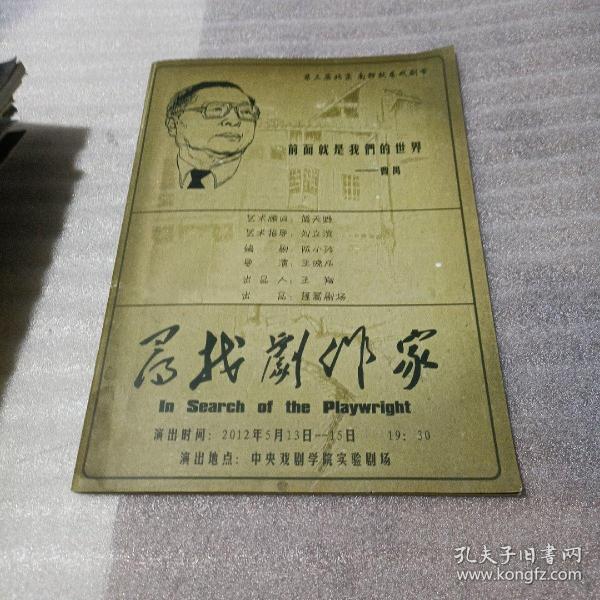 第三届北京 南锣鼓巷戏剧节
前面就是我們的世界
——曹禺
艺术顾问:
艺术指导:
编 剧
导 演: 王晓
出 品 人: 王 翔
出 品: 蓬蒿剧场
尋找劇作家
In Search of the Playwright
演出时间: 2012年5月13日--15日 19: 30
演出地点: 中央戏剧学院实验剧场
孔夫子旧书网
www.kongfz.com